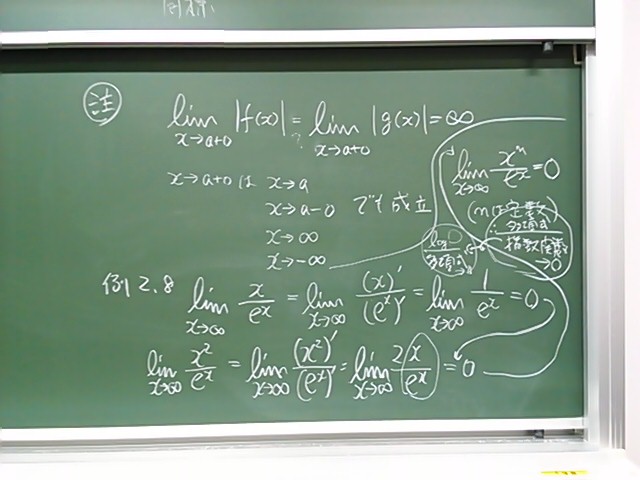 注
lim x→a+0 |f(x)| = lim x→a+0 |g(x)| = ∞
x→a+0 は x→a
x→a-0 でも成立
x→∞
x→-∞
lim x→∞ xⁿ/eˣ = 0
(nは定数)
多項式/指数関数 → 0
log/多項式
例2.8 lim x→∞ x/eˣ = lim x→∞ (x)'/(eˣ)' = lim x→∞ 1/eˣ = 0
lim x→∞ x²/eˣ = lim x→∞ (x²)'/(eˣ)' = lim x→∞ 2x/eˣ = 0